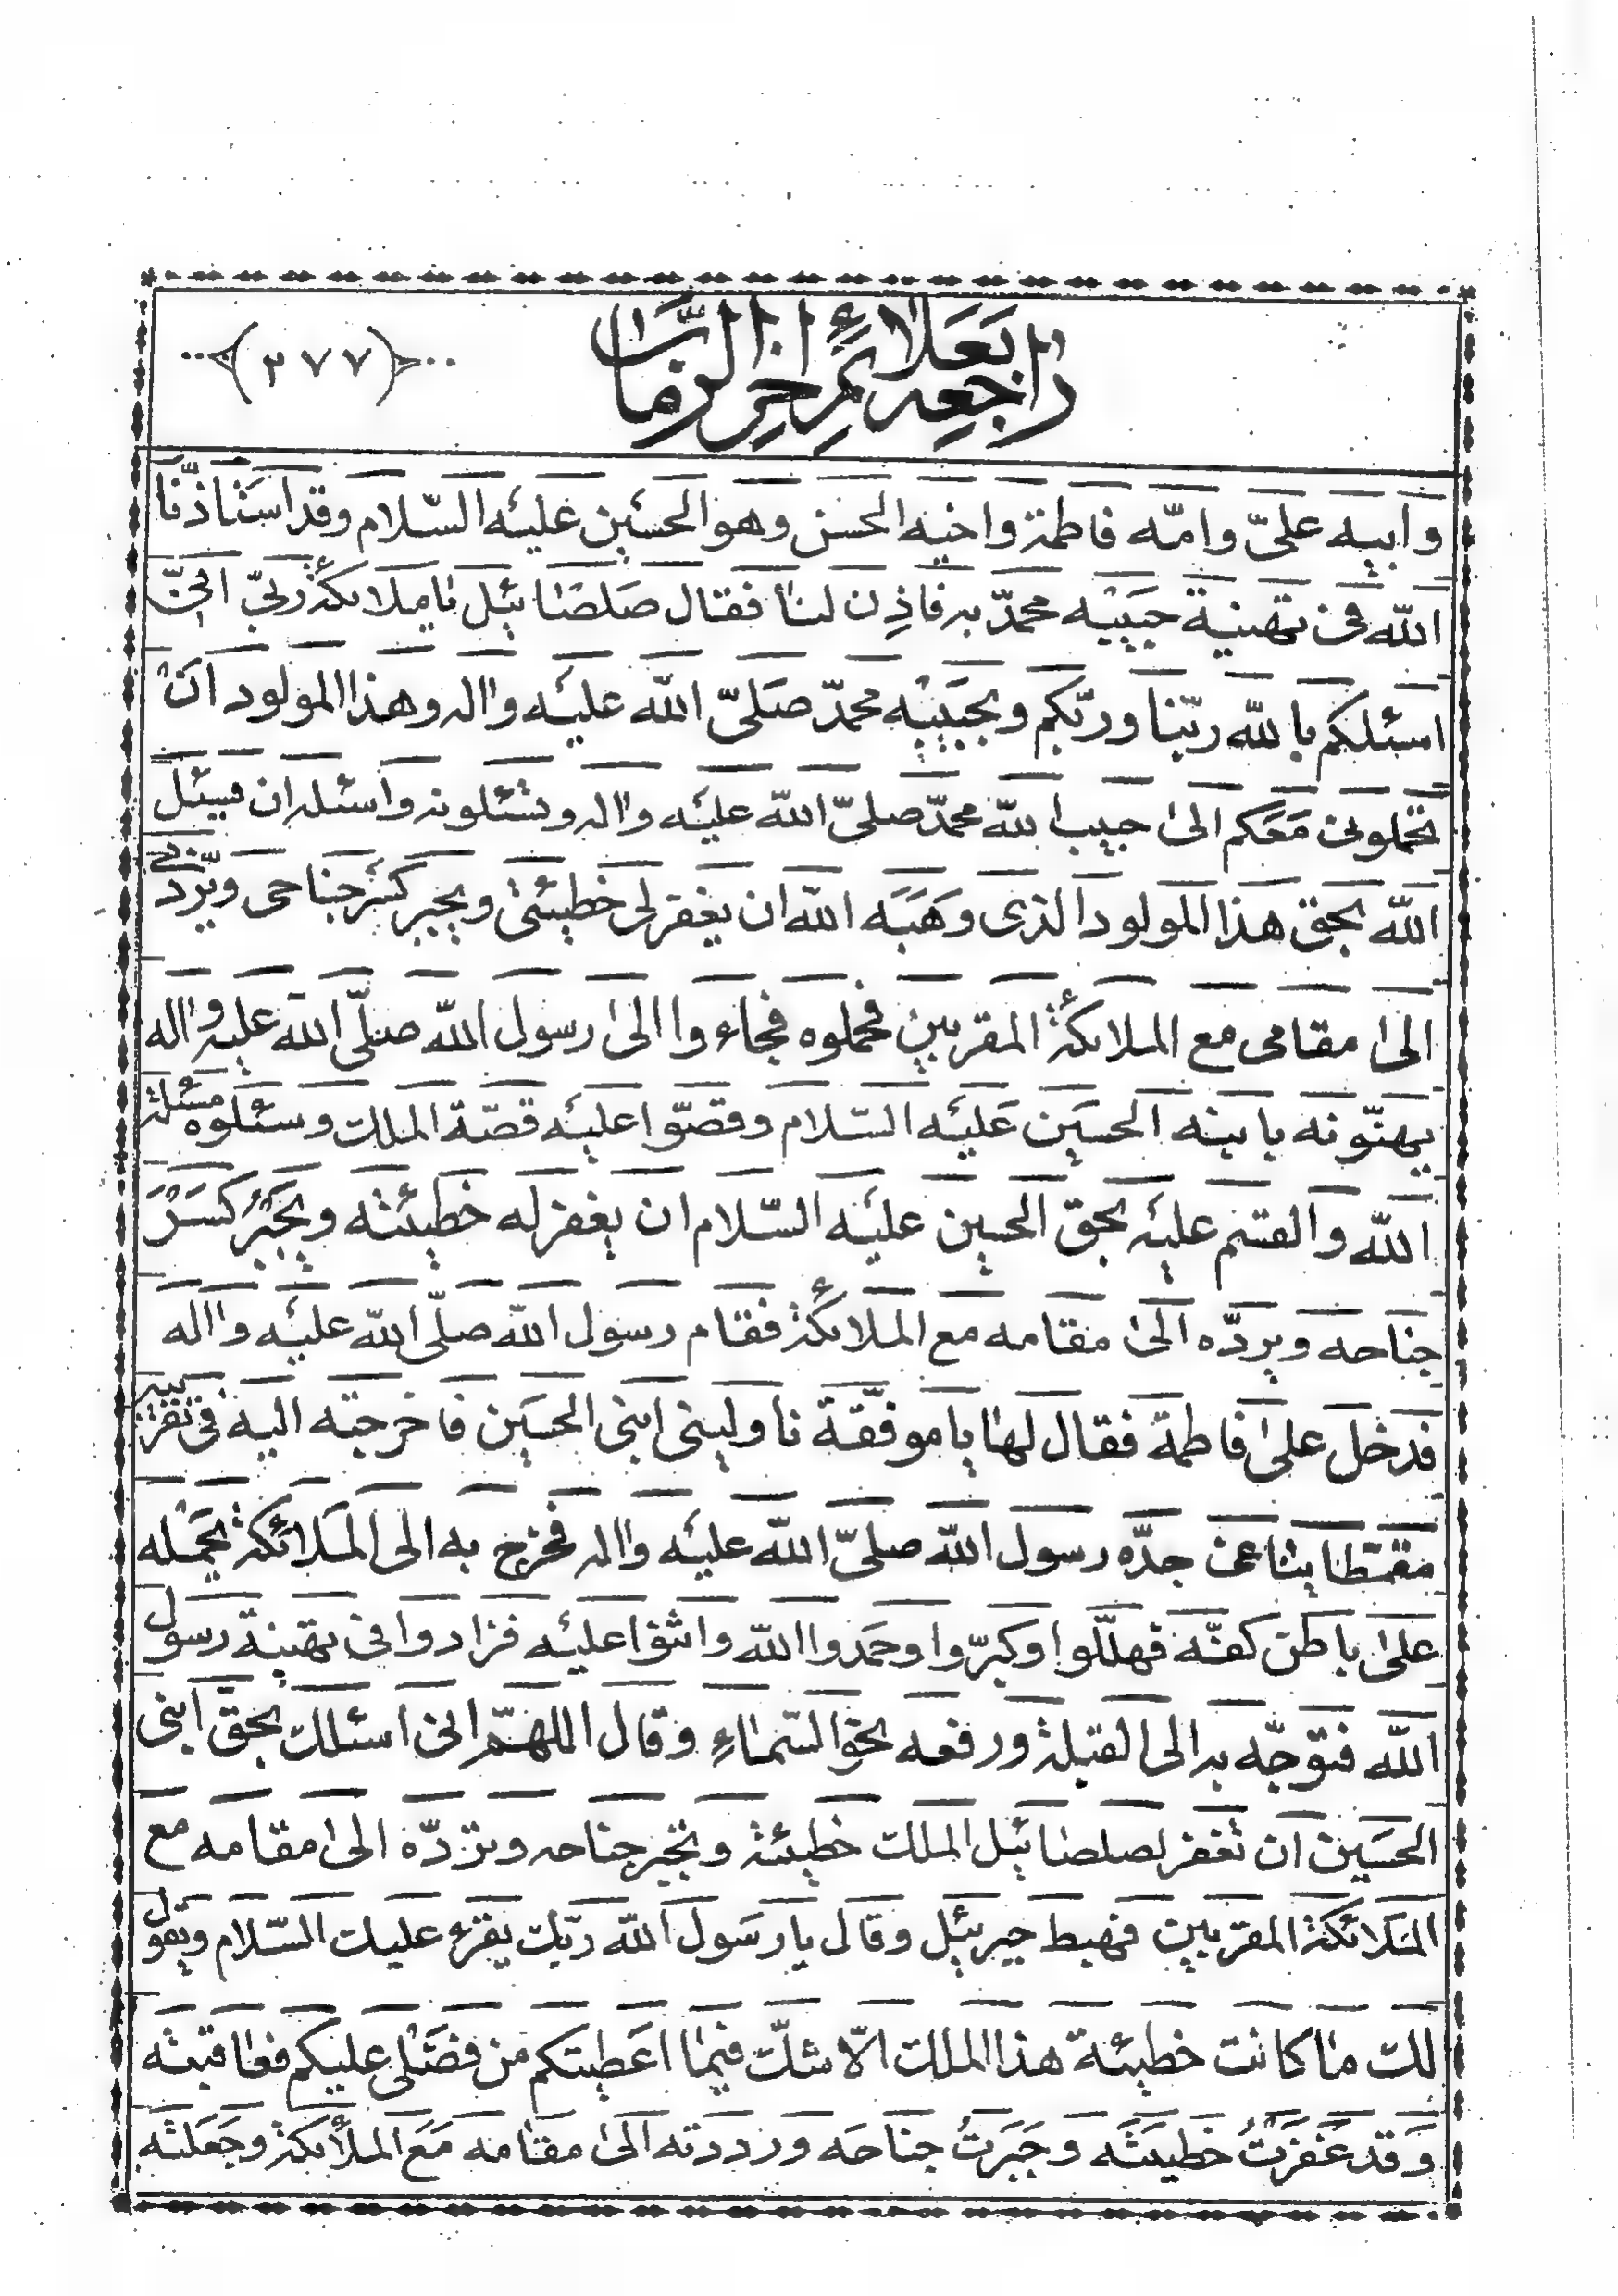 راجعه بعلائم اخر الزمان
(٢٧٧)
وابيه علىّ وامّه فاطمة واخيه الحسن وهو الحسين عليه السّلام وقد استاذنّا
اللّه فى تهنية حبيبه محمدّ به فاذِن لنا فقال صَلصَائيل يا ملائكة ربّي انّى
اسئلكم باللّه ربّنا وربّكم وبحبيبه محمدّ صَلىّ اللّه عليه واله وهذا المولود اَنْ
تحملونى مَعَكم الى حبيب اللّه محمدّ صلىّ اللّه عليه واله وتسئلونه واسئله ان يسئل
اللّه بحق هذا المولود الذى وَهَبَه اللّه ان يغفر لى خطيئتى ويجبر كسْر جناحى ويرّدنى
الى مقامى مع الملائكة المقربين فحملوه فجاءوا الى رسول اللّه صلّى اللّه عليه واله
يهنّونه بابنه الحسين عَليه السّلام وقصّوا عليه قصّة الملك وسئلوه مسئلة
اللّه والقسم عليه بحق الحسين عليه السّلام ان يغفر له خطيئته ويَجبُر كَسْرَ
جناحه ويردّه الى مقامه مع الملائكة فقام رسول اللّه صلّى اللّه عليه واله
فدخل على فاطمة فقال لها يا موفّقة ناولينى ابنى الحسَين فاخرجته اليه فى
مقمّطا يناغى جدّه رسول اللّه صلىّ اللّه عليه واله فخرج به الى المَلائكة يَحمله
على باطن كفّه فهلّلوا وكبرّوا وحَمدوا اللّه واثنوا عليه فزادوا فى تهنية رسول
اللّه فتوجّه به الى القبلة ورفعه نحو السّماءِ وقال اللهمّ انى اسئلك بحقّ ابنى
الحسَين ان تغفر لصلصائيل الملك خطيئته وتجبر جناحه وتردّه الى مقامه مع
المَلائكة المقربين فهبط جبرئيل وقال يا رسَول اللّه ربّك يقرء عليك السّلام ويقول
لك ما كانت خطيئة هذا الملك الاّ شكّ فيما اعَطيتكم من فضَلى عليكم فعاقبته
وَقد غَفَرَتُ خطيئته وجَبَرَتُ جناحَه ورددته الى مقامه مَع الملأئكة وجَعلته